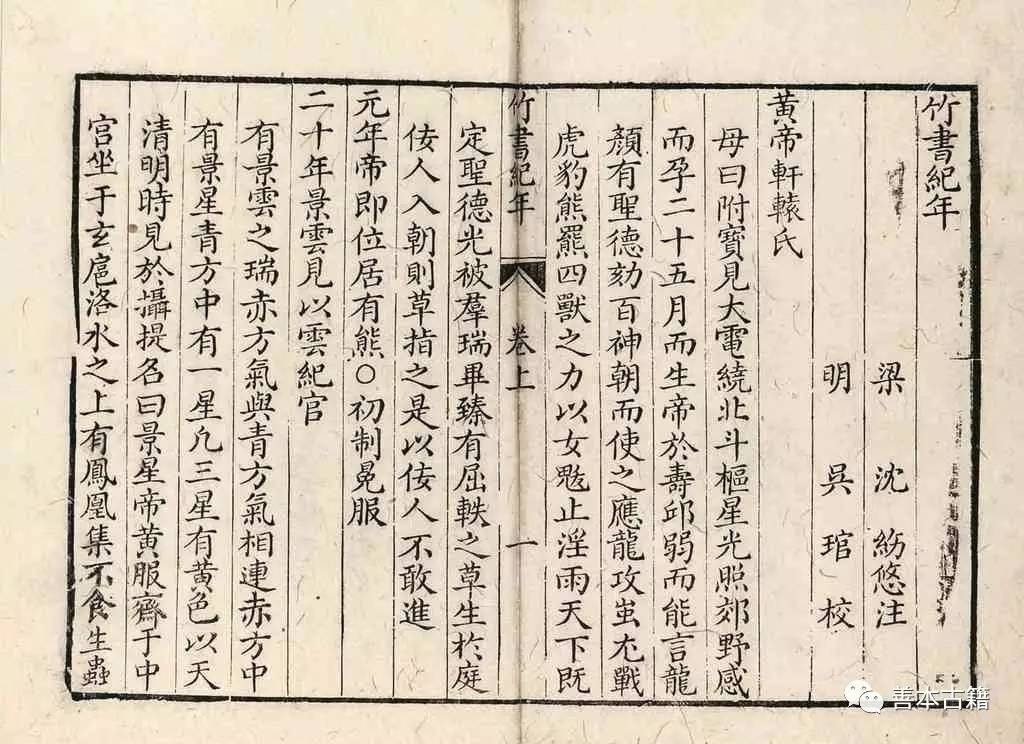 竹書紀年
梁 沈 約悠注
明 吳 琯 校
黃帝軒轅氏
母曰附寶見大電繞北斗樞星光照郊野感
而孕二十五月而生帝於壽邱弱而能言龍
顏有聖德劾百神朝而使之應龍攻蚩尤戰
虎豹熊羆四獸之力以女魃止淫雨天下既
竹書紀年 卷上 一
定聖德光被羣瑞畢臻有屈軼之草生於庭
佞人入朝則草指之是以佞人不敢進
元年帝即位居有熊○初制冕服
二十年景雲見以雲紀官
有景雲之瑞赤方氣與青方氣相連赤方中
有景星青方中有一星凡三星有黃色以天
清明時見於攝提名曰景星帝黃服齋于中
宮坐于玄扈洛水之上有鳳凰集不食生蟲
善本古籍